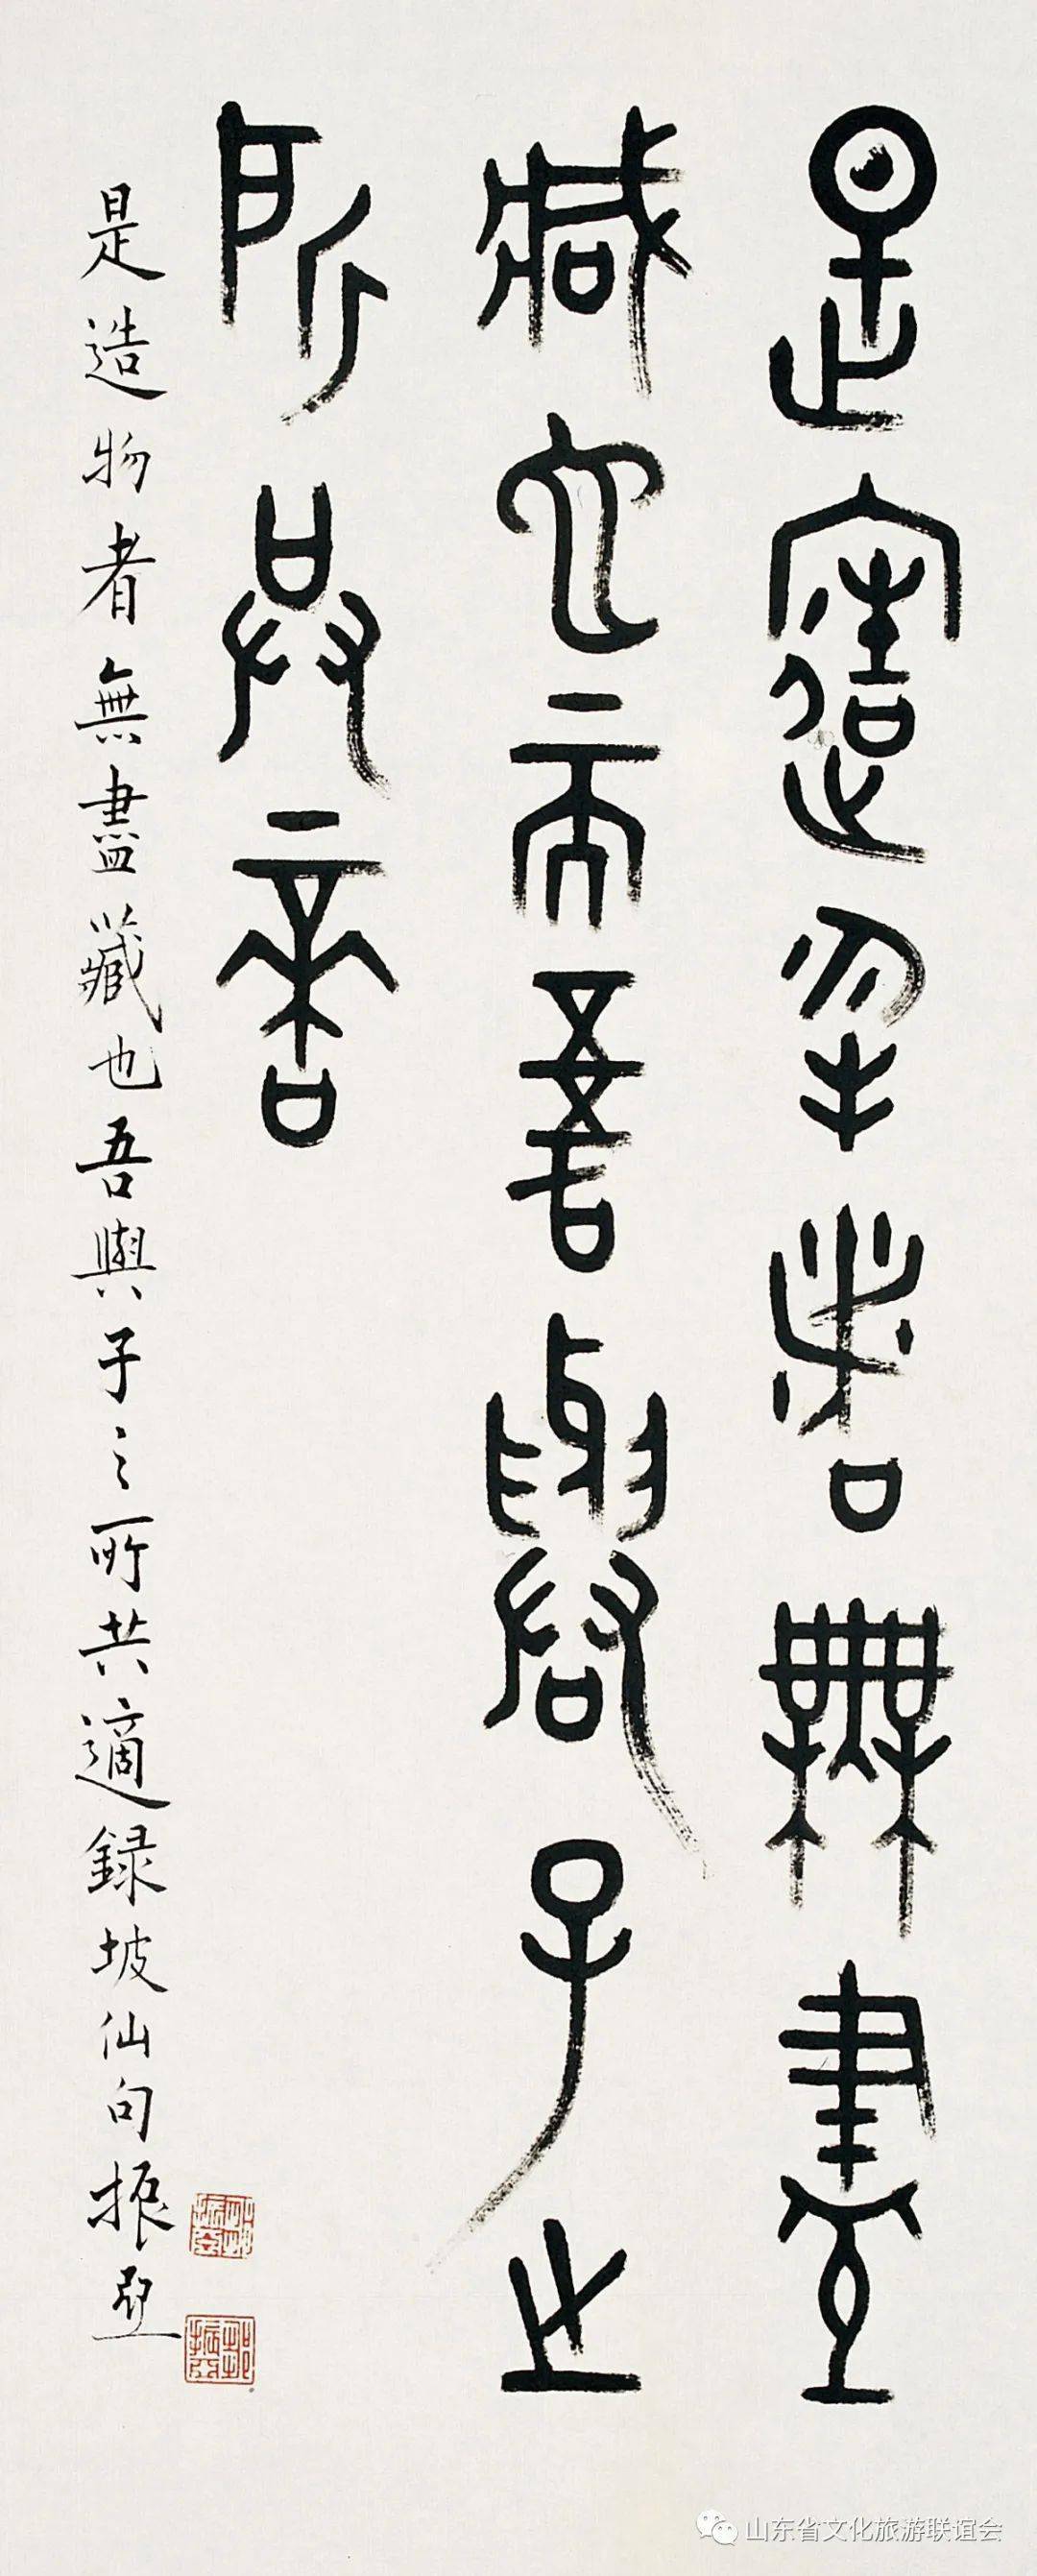 是造物者無盡
藏也而吾與子之
所共啻
是造物者無盡藏也吾與子之所共適錄坡仙句振亞
山东省文化旅游联谊会